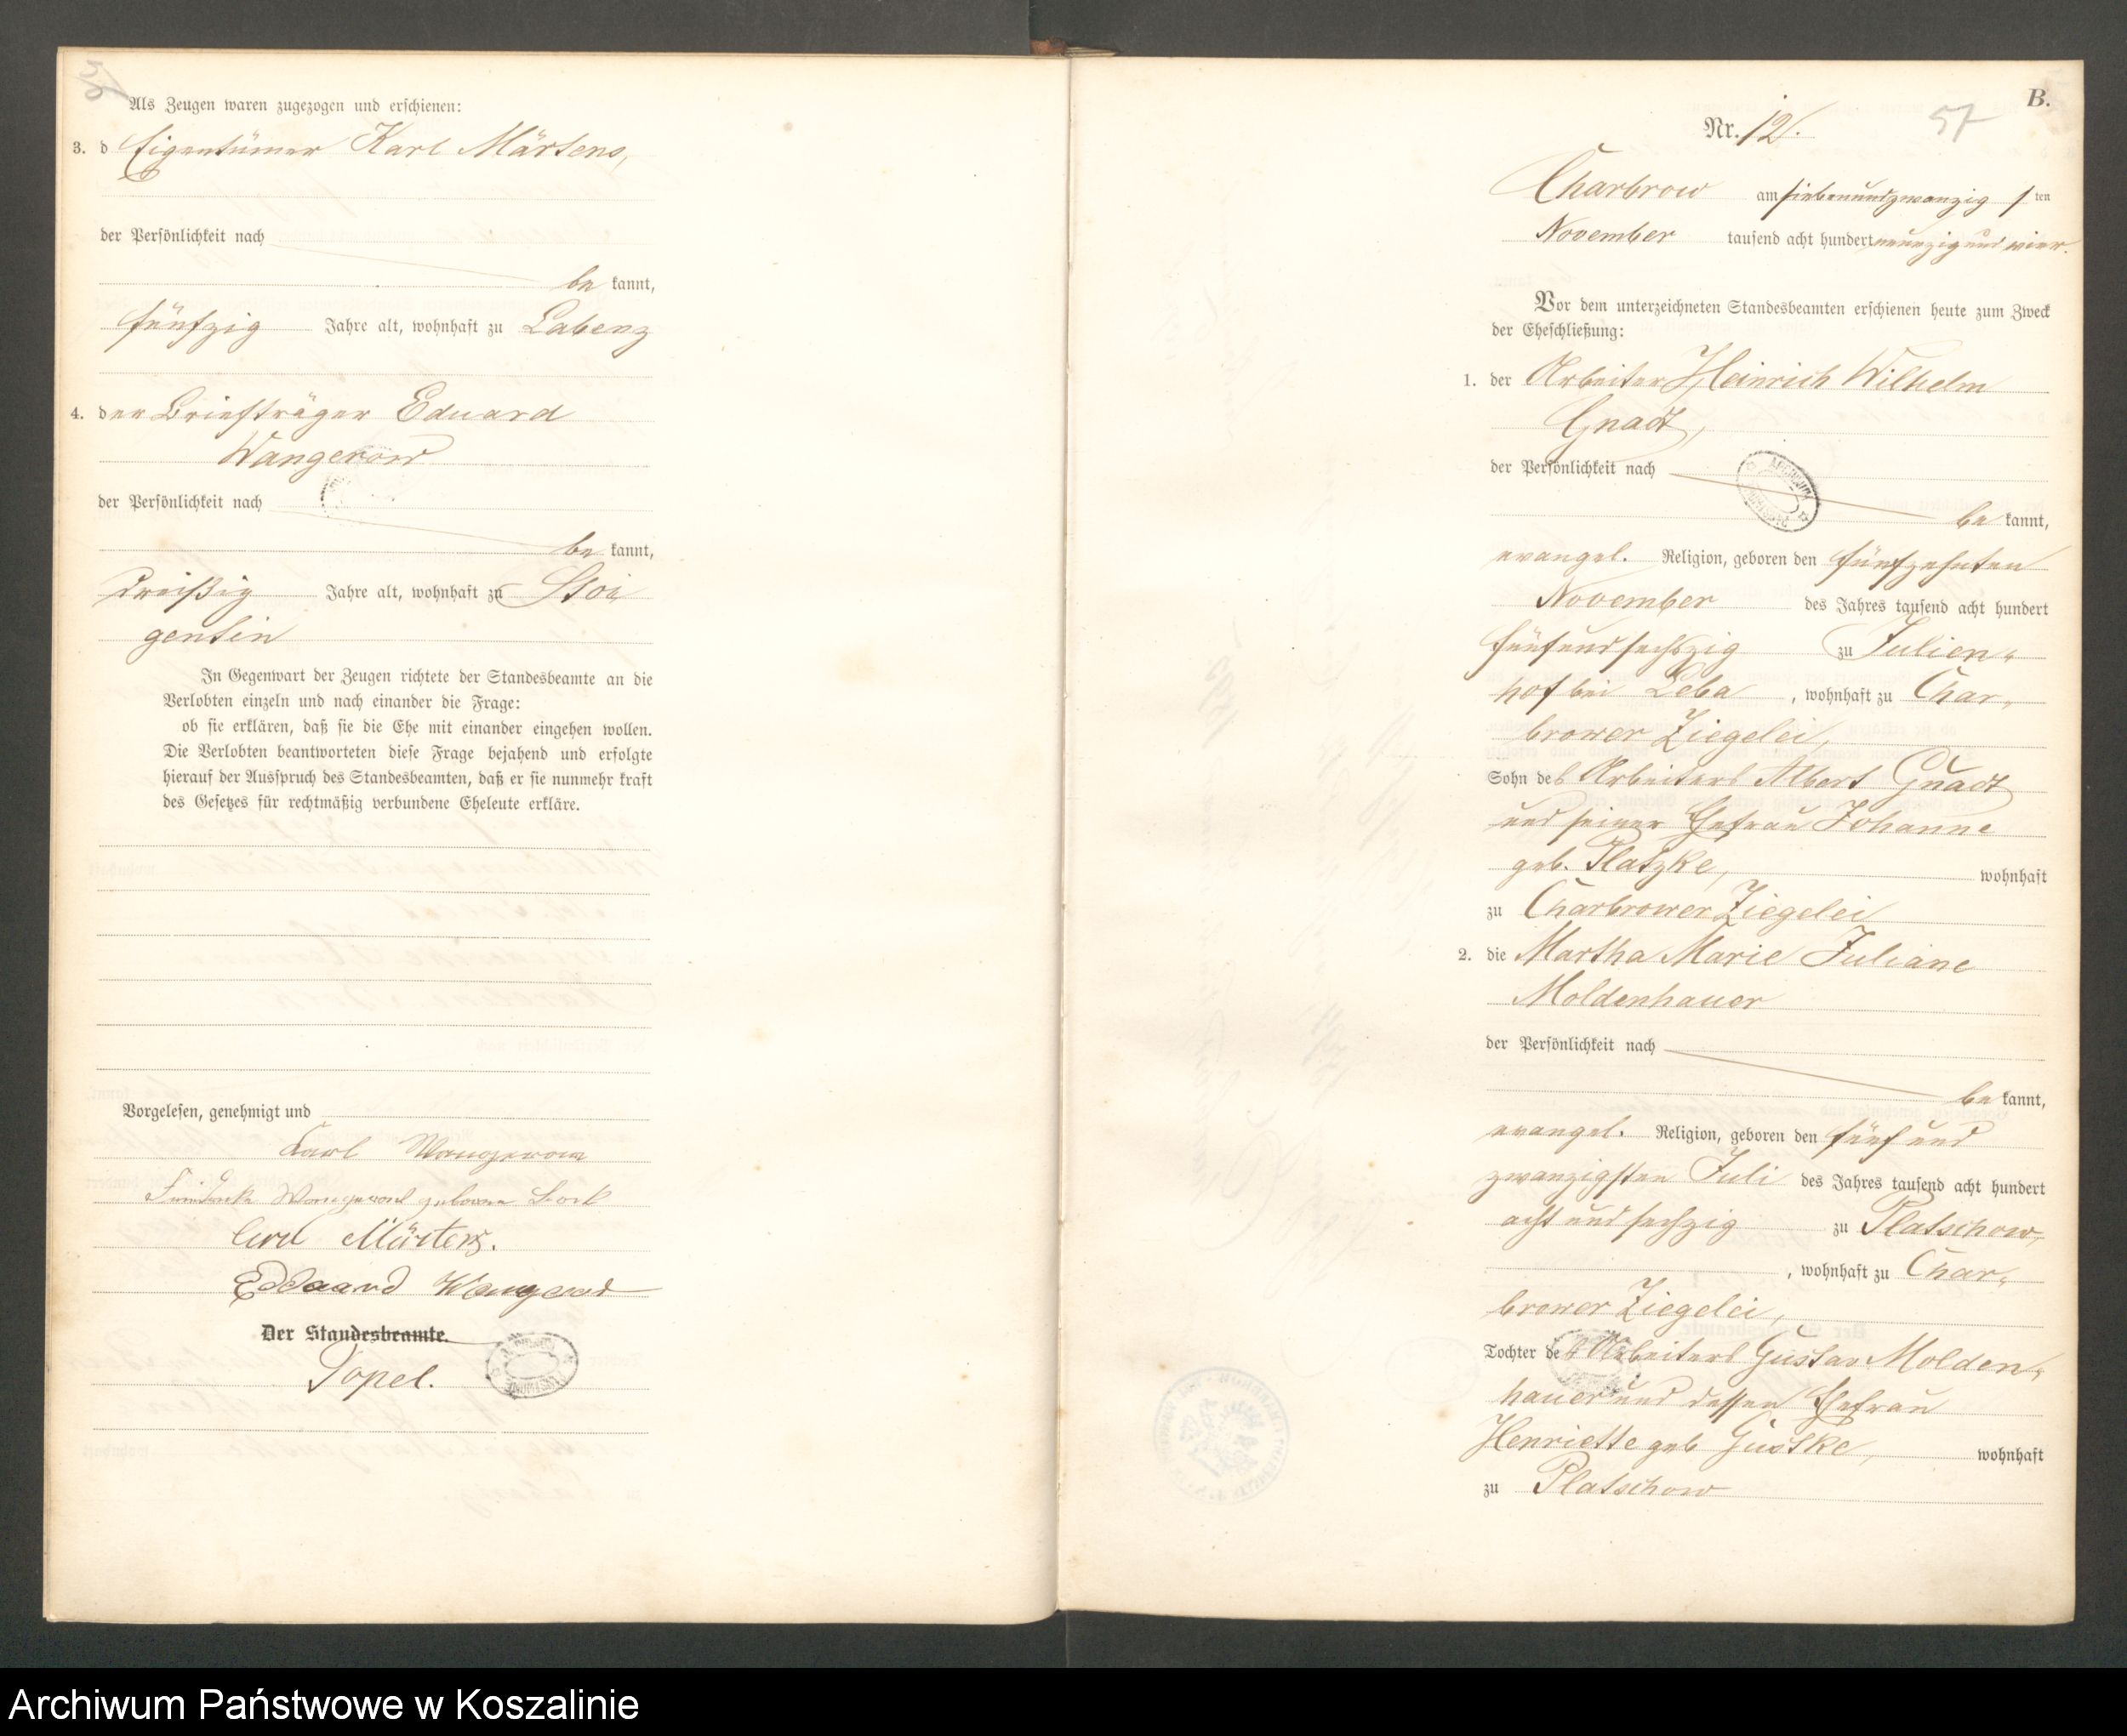 Als Zeugen waren zugezogen und erschienen:
3. d Eigentümer Karl Märtens,
der Persönlichkeit nach
be kannt,
fünfzig Jahre alt, wohnhaft zu Labenz
4. der Briefträger Eduard
Wangerow
der Persönlichkeit nach
be kannt,
dreißig Jahre alt, wohnhaft zu Stoi-
gentin
In Gegenwart der Zeugen richtete der Standesbeamte an die
Verlobten einzeln und nach einander die Frage:
ob sie erklären, daß sie die Ehe mit einander eingehen wollen.
Die Verlobten beantworteten diese Frage bejahend und erfolgte
hierauf der Ausspruch des Standesbeamten, daß er sie nunmehr kraft
des Gesetzes für rechtmäßig verbundene Eheleute erkläre.
Vorgelesen, genehmigt und
Karl Wangerow
Friederike Wangerow geborene Bork
Carl Märtens.
Eduard Wangerow
Der Standesbeamte.
Topel.
B.
57
Nr. 12.
Charbrow am siebenundzwanzig ten
November tausend acht hundert neunzig und vier.
Vor dem unterzeichneten Standesbeamten erschienen heute zum Zweck
der Eheschließung:
1. der Arbeiter Heinrich Wilhelm
Gnadt,
der Persönlichkeit nach
be kannt,
evangel. Religion, geboren den fünfzehnten
November des Jahres tausend acht hundert
fünfundsechszig zu Julien-
hof bei Leba, wohnhaft zu Char-
brower Ziegelei,
Sohn des Arbeiters Albert Gnadt
und seiner Ehefrau Johanne
geb. Platzke, wohnhaft
zu Charbrower Ziegelei
2. die Martha Marie Juliane
Moldenhauer
der Persönlichkeit nach
be kannt,
evangel. Religion, geboren den fünf und
zwanzigsten Juli des Jahres tausend acht hundert
acht und sechzig zu Platschow,
, wohnhaft zu Char-
brower Ziegelei,
Tochter des Arbeiters Gustav Molden-
hauer und dessen Ehefrau
Henriette geb Gustke, wohnhaft
zu Platschow
Archiwum Państwowe w Koszalinie